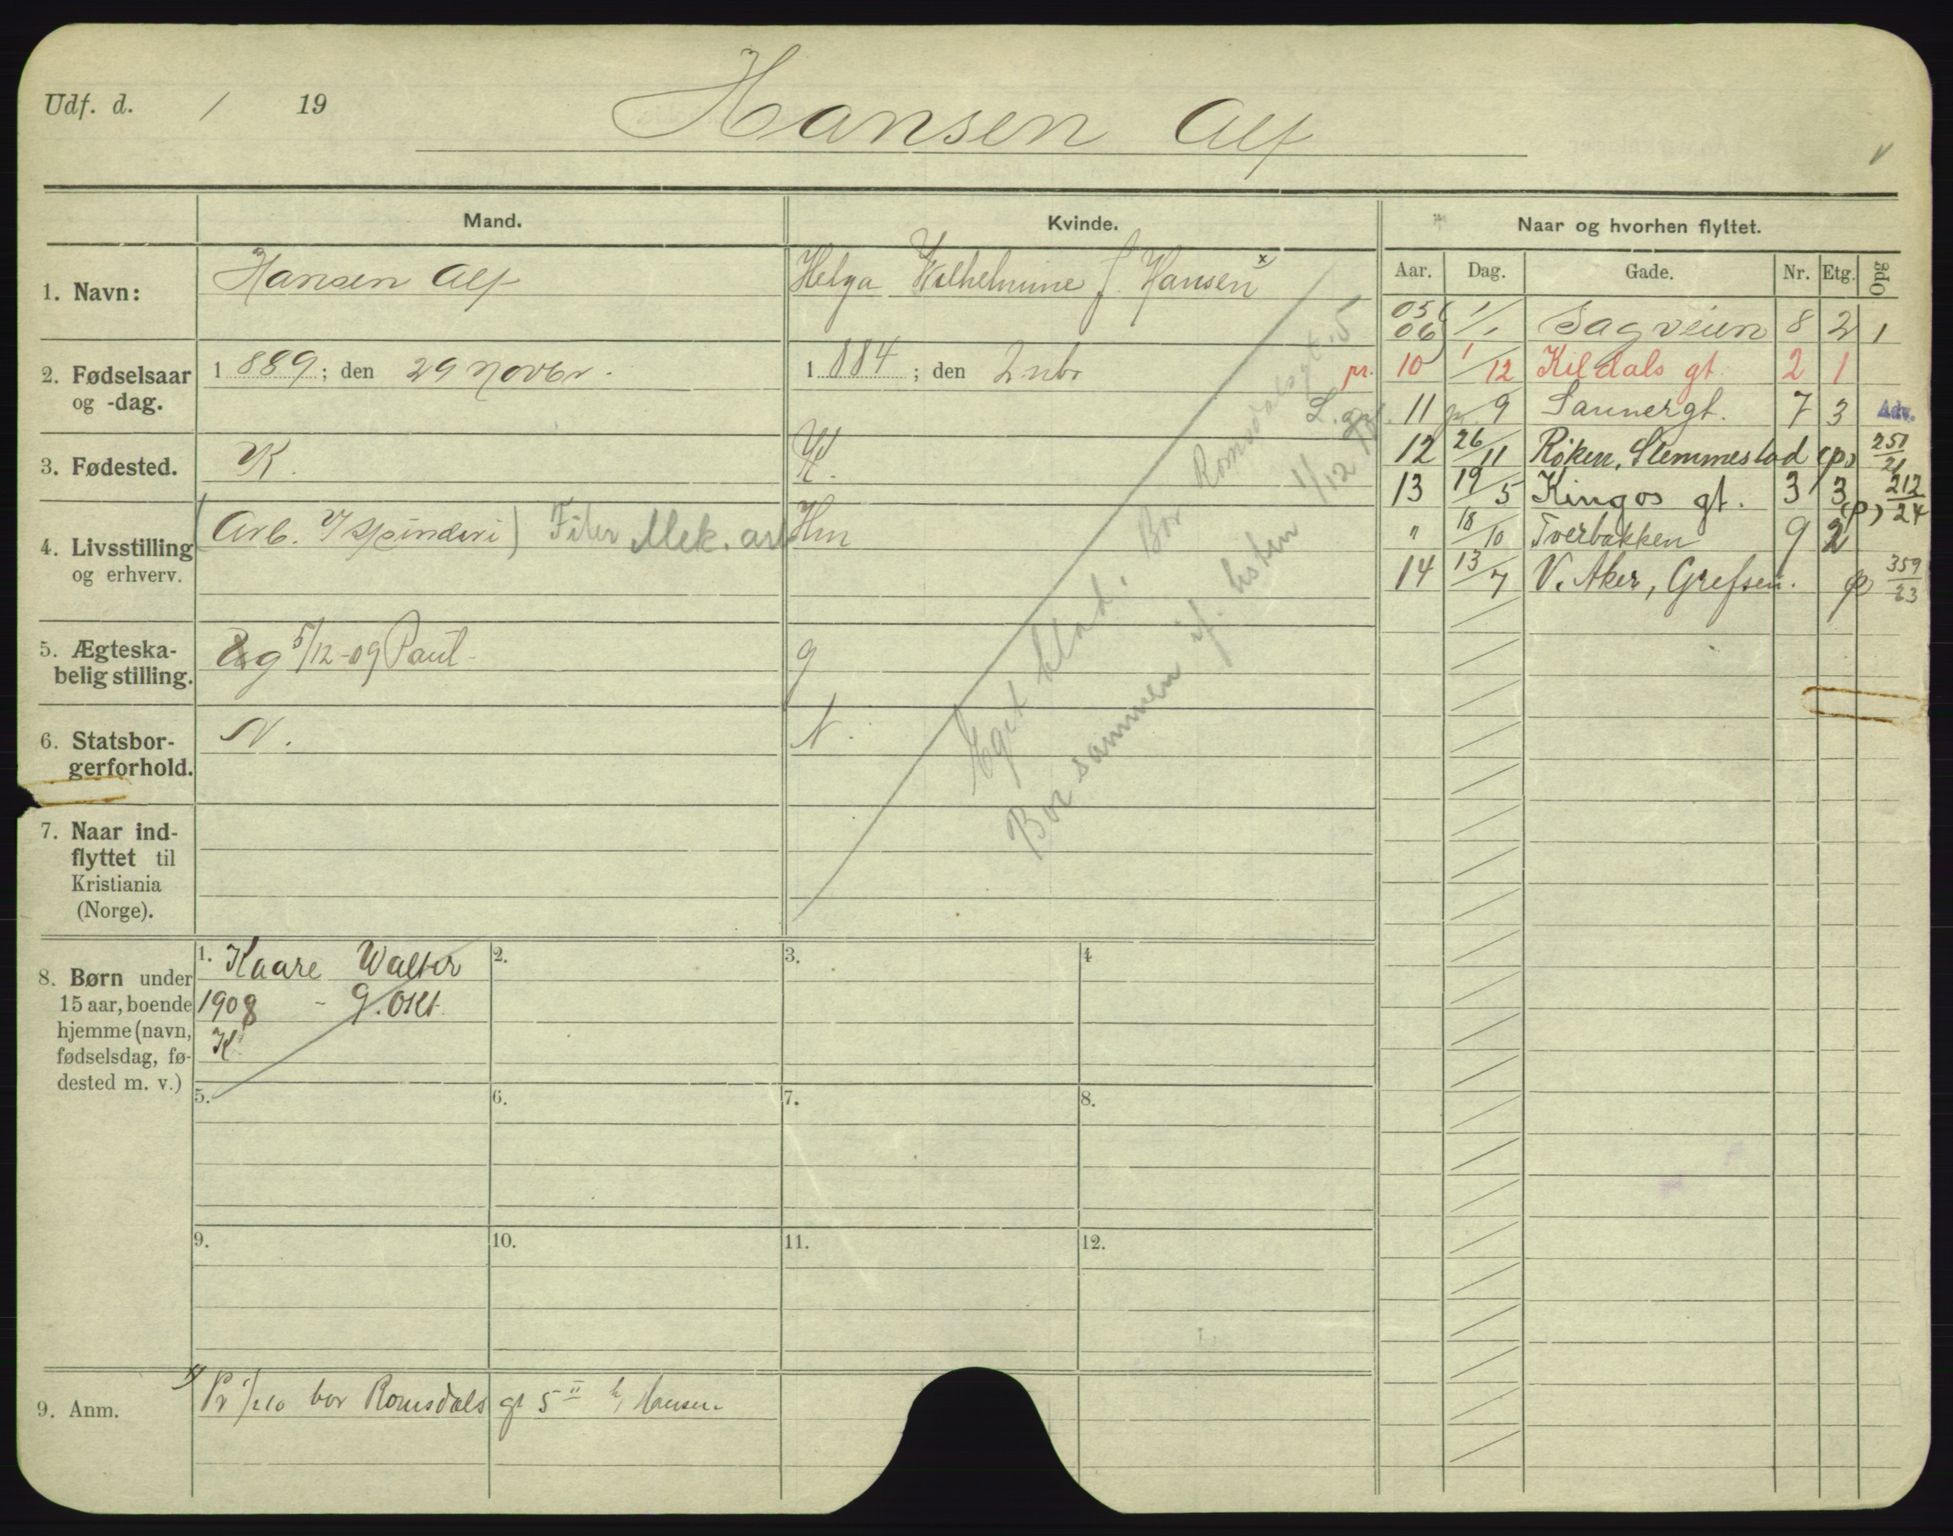 Udf. d. / 19
Hansen Alf
Mand. Kvinde. Naar og hvorhen flyttet.
Aar. Dag. Gade. Nr. Etg. Opg
1. Navn: Hansen Alf
Helga Wilhelmine f. Hansen x
2. Fødselsaar og -dag. 1889; den 29 Novbr.
1884; den 2 nbr
3. Fødested. K.
K.
4. Livsstilling og erhverv. (Arb. v/ spinderi) Filer Mek. arb
Hm
5. Ægteskabelig stilling. g 5/12-09 Paul.
g
6. Statsborgerforhold. N.
N.
7. Naar indflyttet til Kristiania (Norge).
Eget blad. Bor Romsdalsgt. 5
Bor sammen if. listen 1/12
05 06 1/1 Sagveien 8 2 1
pr. 10 1/12 Kildals gt. 2 1
11 9 Sannergt. 7 3 Adv.
12 26/11 Røken, Slemmestad (p) 251/21
13 19/5 Kingos gt. 3 3 (p) 212/24
" 18/10 Tverbakken 9 2
14 13/7 V. Aker, Grefsen. p 359/23
8. Børn under
15 aar, boende
hjemme (navn,
fødselsdag, fødested m. v.)
1. Kaare Walter
1908 - 9. Okt.
K
2.
3.
4
5.
6.
7.
8.
9.
10.
11.
12.
9. Anm. Pr 1/210 bor Romsdals gt 5 II h/ Hansen